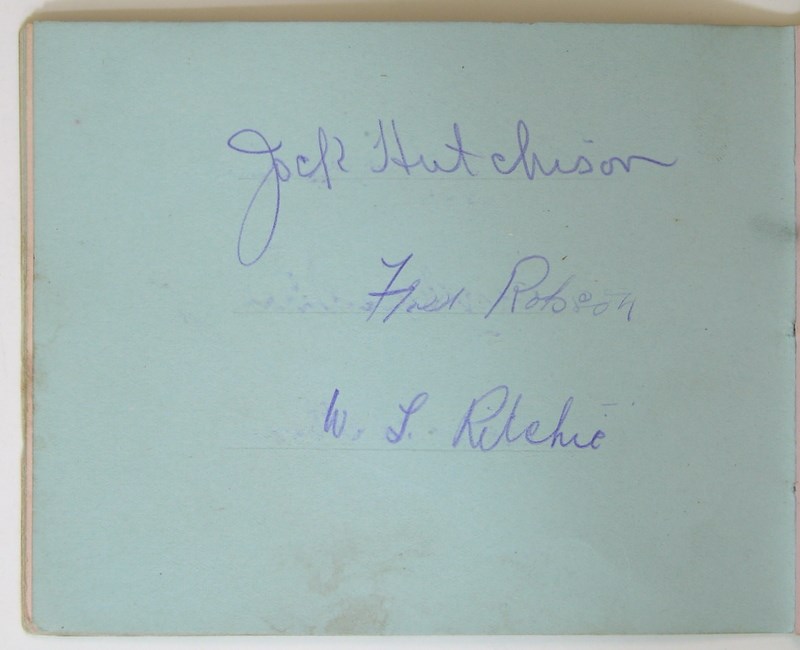 Jock Hutchison
Fred Robson
W. L. Ritchie